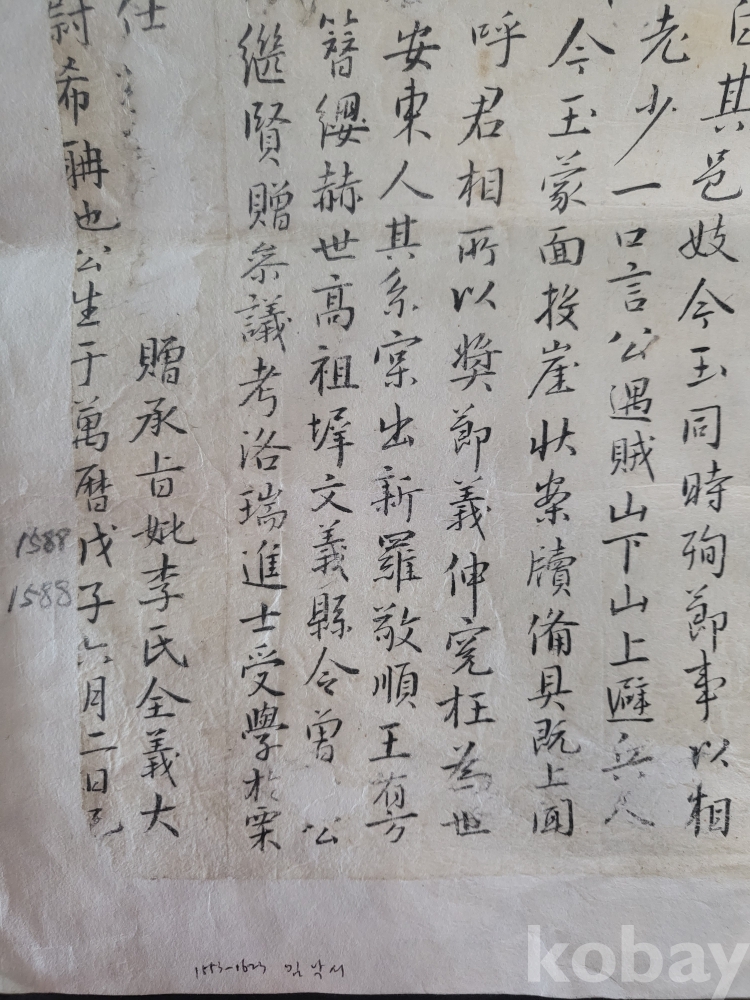 其邑妓今玉同時殉節事以相
老少一口言公遇賊山下山上避兵人
今玉蒙面投崖狀案牘備具既上聞
呼君相所以奬節義伸寃枉為世
安東人其系寔出新羅敬順王有諱方
簪纓赫世高祖墀文義縣令曾 公
繼賢贈參議考洛瑞進士受學於栗
仕 贈承旨妣李氏全義大
尉希聃也公生于萬曆戊子六月二日
1588
1588
1553-1623
kobay